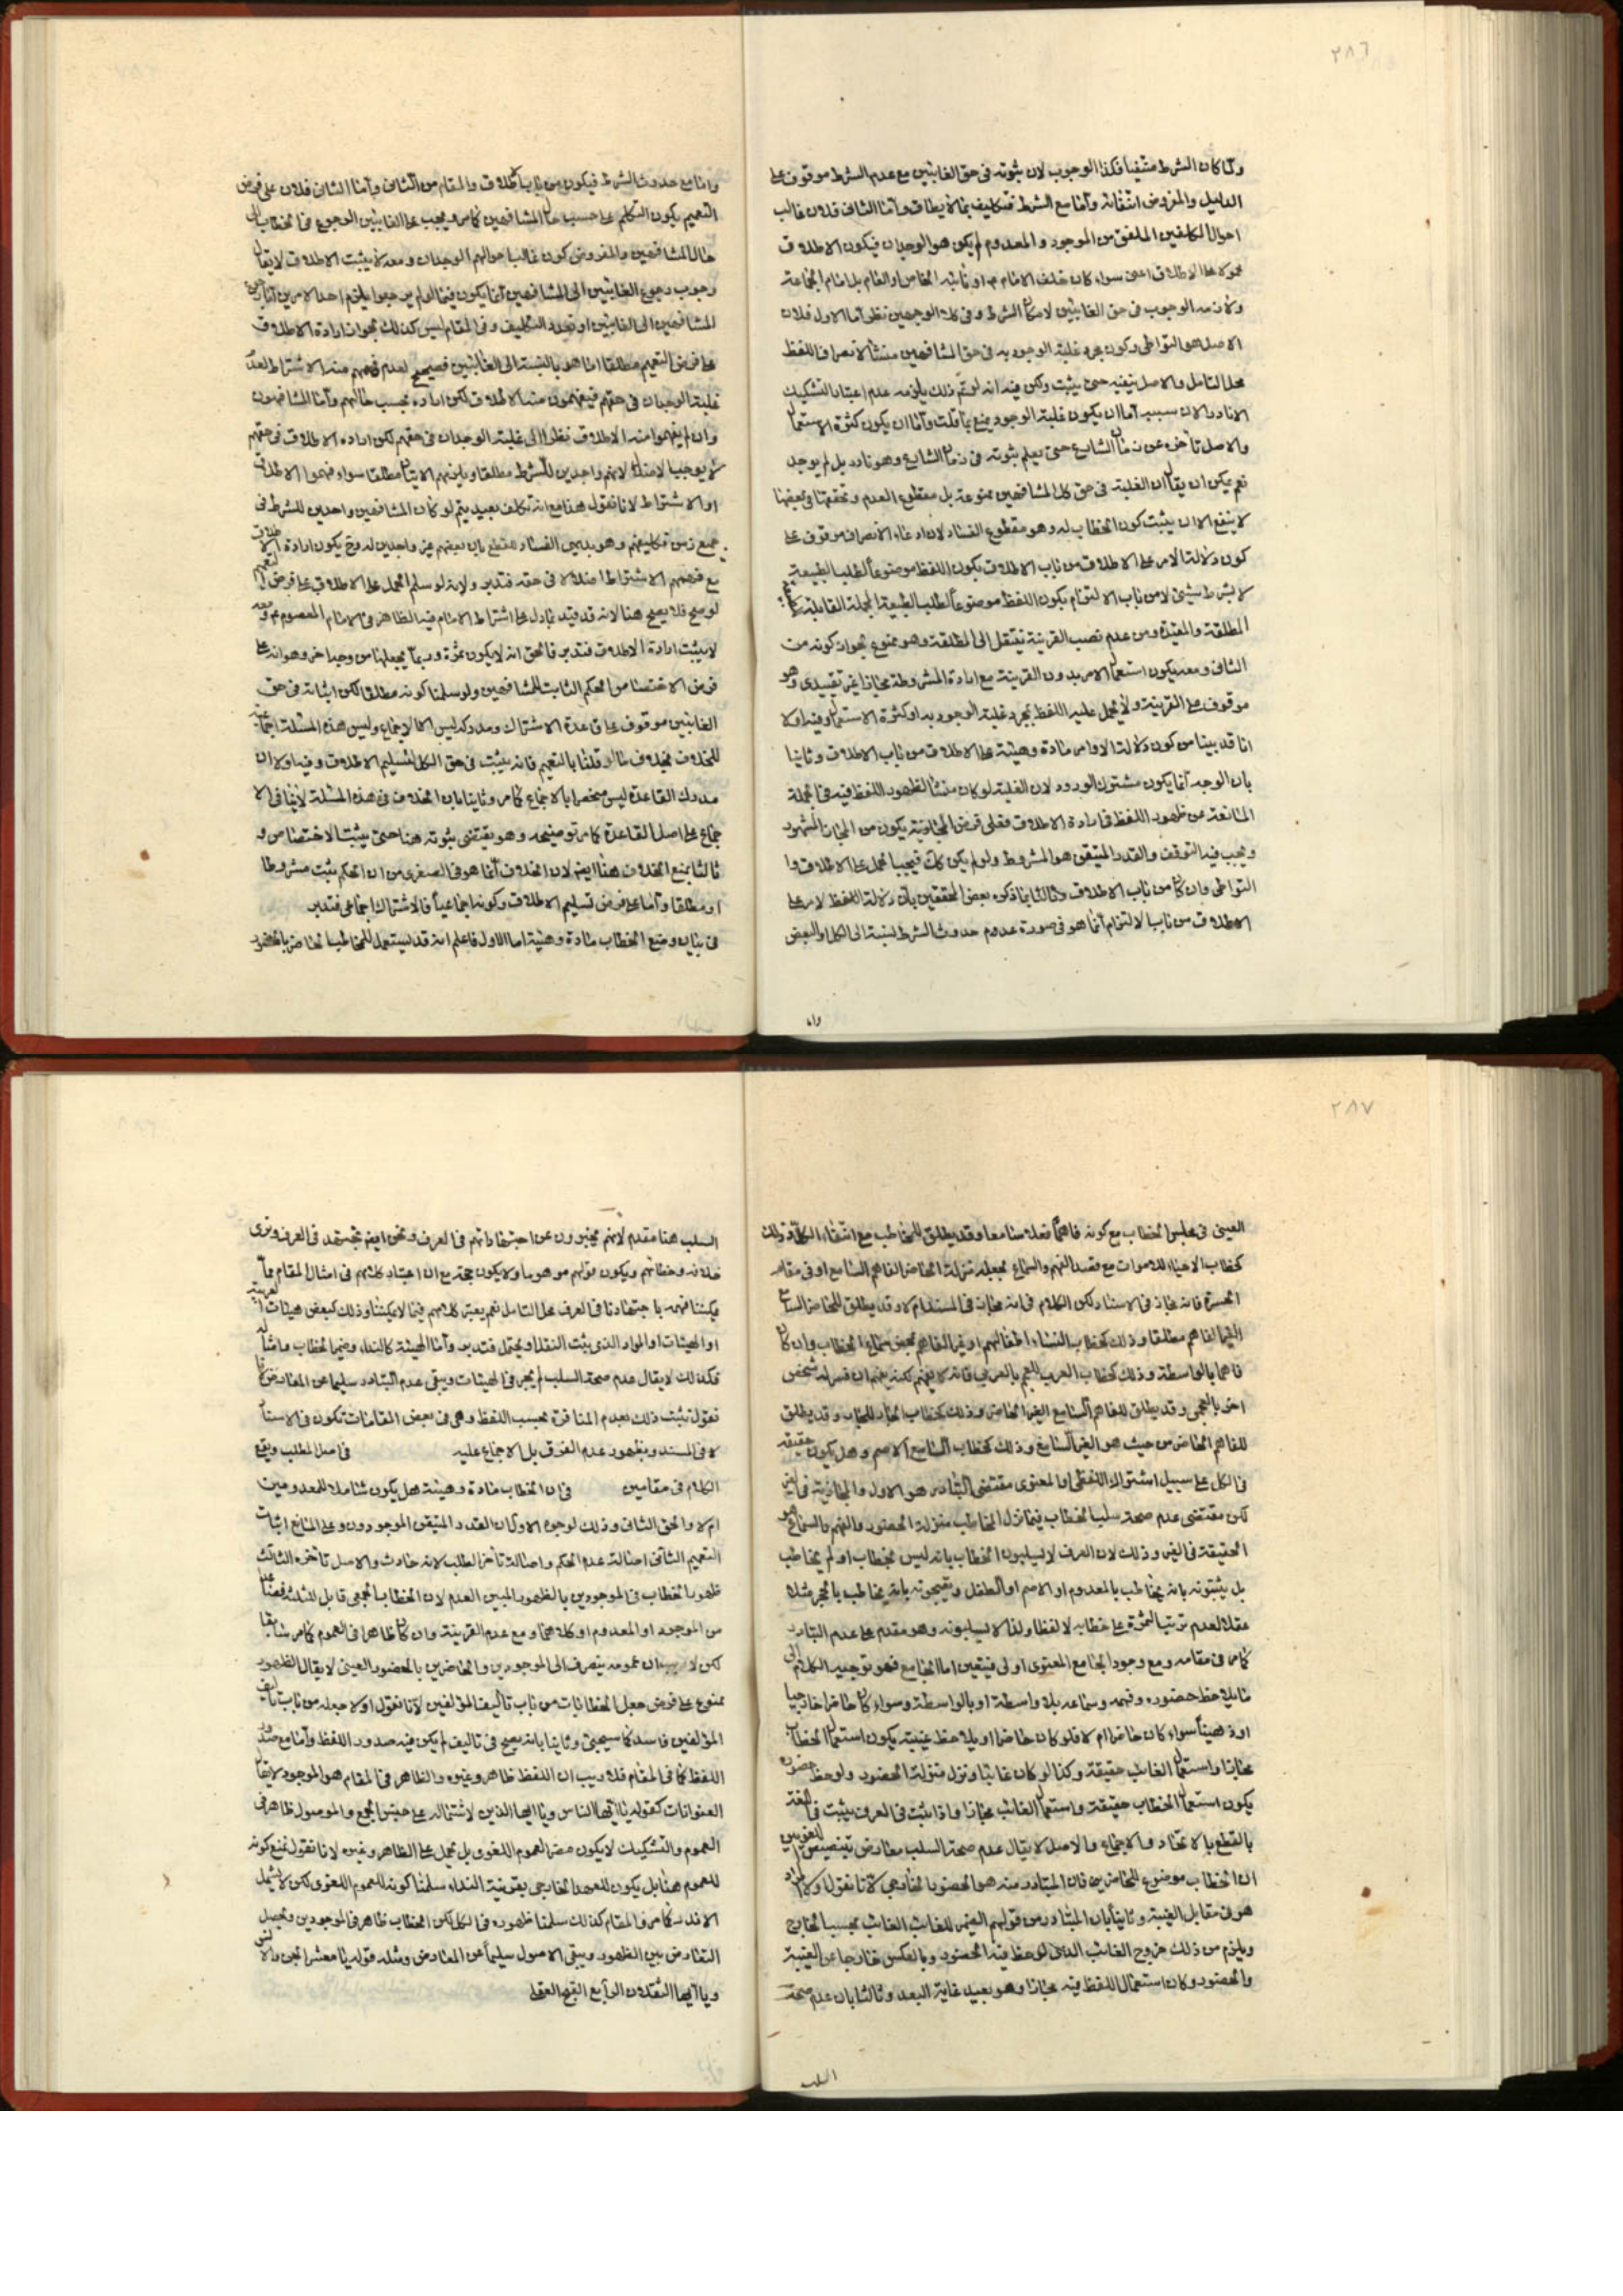 ٢٨٦
ولما كان الشرط منتفيا فكذا الوجوب لان ثبوته فى حق الغائبين مع عدم الشرط موقوف على
الدليل والمفروض انتفائه وأما مع الشرط فتكليف بما لا يطاق وأما الثانى فلان غالب
احوال المكلفين الملفق من الموجود والمعدوم لم يكن هو الوجدان فيكون الاطلاق
سواء كان خلف الامام او نائبه الخاص او العام بل امام الجماعة
ولازمه الوجوب فى حق الغائبين لامكان الشرط وفى كلا الوجهين نظر أما الاول فلان
الاصل هو التواطى وكون مجرد غلبة الوجود به فى حق المشافهين منشأ لانصراف اللفظ
محل التأمل والاصل ينفيه حتى يثبت ولكن فيه انه لو تم ذلك يلزمه عدم اعتبار التشكيك
الا نادرا لان سببيه أما ان يكون غلبة الوجود يمنع بما قلت وأما ان يكون كثرة الاستعمال
والاصل تأخره عن زمان الشارع حتى يعلم ثبوته فى زمان الشارع وهو نادر بل لم يوجد
نعم يمكن ان يقال ان الغلبة فى حق كل المشافهين ممنوعة بل مقطوع العدم وتحققها فى بعضها
لا ينفع الا ان يثبت كون الخطاب له وهو مقطوع الفساد لان ادعاء الانصراف موقوف على
كون دلالة الامر على الاطلاق من باب الاطلاق بكون اللفظ موضوعا لطلب الطبيعة
لا بشرط شيئ لا من باب الالتزام بكون اللفظ موضوعا لطلب الطبيعة المجملة القابلة
المطلقة والمقيدة ومن عدم نصب القرينة ينتقل الى المطلقة وهو ممنوع لجواز كونه من
الثانى ومعه يكون استعمال الامر بدون القرينة مع ارادة المشروطة مجازا غير تقييدى وهو
موقوف على القرينة ولا يحمل عليه اللفظ بمجرد غلبة الوجود به او كثرة الاستعمال وفيه اولا
انا قد بينا من كون دلالة الاوامر مادة وهيئة على الاطلاق من باب الاطلاق وثانيا
بان الوجه انما يكون مشترك الورود لان الغلبة لو كان منشأ لظهور اللفظ فيه فى الجملة
المانعة عن ظهور اللفظ فى ارادة الاطلاق فعلى فرض المجازية يكون من المجاز المشهور
ويجب فيه التوقف والقدر المتيقن هو المشروط ولو لم يكن كك فيجب الحمل على الاطلاق وا
التواطى وان كان من باب الاطلاق وثالثا بما ذكره بعض المحققين بأن دلالة اللفظ لامر على
الاطلاق من باب الالتزام أنما هو فى صورة عدم حدوث الشرط بنسبة الى الكل او البعض
واما
واما مع حدوث الشرط فيكون من باب الاطلاق والمقام من الثانى وأما الثانى فلان على فرض
التعميم يكون التكلم على حسب حال المشافهين كما مر ويجب على الغائبين الرجوع فى الخطاب الى
حال المشافهين والمفروض كون غالب احوالهم الوجدان ومعه لا يثبت الاطلاق لا يقال
وجوب رجوع الغائبين الى المشافهين أنما يكون فيما لو لم يرجعوا يلزم احد الامرين
المشافهين الى الغائبين او تعدد التكليف وفى المقام ليس كذلك لجواز ارادة الاطلاق
على فرض التعميم مطلقا اما هو بالنسبة الى الغائبين فصحيح لعدم فهمهم منه الاشتراط لعدم
غلبة الوجدان فى حقهم فيفهمون منه الاطلاق لكن اراده بحسب حالهم وأما المشافهون
وان لم يفهموا منه الاطلاق نظرا الى غلبة الوجدان فى حقهم لكن اراده الاطلاق فى حقهم
لا يوجب لانهم واجدين للشرط مطلقا ويلزمهم الاتيان مطلقا سواء فهموا الاطلاق
او الاشتراط لانا نقول هذا مع انه تكلف بعيد يتم لو كان المشافهين واجدين للشرط فى
جميع زمن تكليفهم وهو بديهى الفساد للقطع بان بعضهم غير واجدين له وح يكون ارادة الاطلاق
مع فهمهم الاشتراط اضلالا فى حقه فتدبر ولانه لو سلم الحمل على الاطلاق على فرض التعميم
لو صح فلا يصح هنا لانه قد قيد بما دل على اشتراط الامام فيه الظاهر فى الامام المعصوم ومعه
لا يثبت ارادة الاطلاق فتدبر فالحق انه لا يكون ثمرة وربما يجعلها من وجه اخر وهو انه على
فرض الاختصاص الحكم الثابت للمشافهين ولو سلمنا كونه مطلقا لكن اثباته فى حق
الغائبين موقوف على قاعدة الاشتراك ومدركه ليس الا الاجماع وليس هذه المسئلة اجماعية
للخلاف بخلاف ما لو قلنا بالتعميم فانه يثبت فى حق الكل لتسليم الاطلاق وفيه اولا ان
مدرك القاعدة ليس منحصرا بالاجماع كما مر وثانيا بان الخلاف فى هذه المسئلة لا ينافى الا
جماع على اصل القاعدة كما مر توضيحه وهو يقتضى ثبوته هنا حتى يثبت الاختصاص و
ثالثا بمنع الخلاف هنا ايضا لان الخلاف أنما هو فى الصغرى من ان الحكم يثبت مشروطا
او مطلقا وأما على فرض تسليم الاطلاق وكونه اجماعيا فالاشتراك اجماعى فتدبر
فى بيان وضع الخطاب مادة وهيئة اما الاول فاعلم انه قد يستعمل للمخاطب الحاضر بالحضور
٢٨٧
العينى فى مجلس الخطاب مع كونه فاهما فعلا سامعا وقد يطلق للمخاطب مع انتفاء الكل وذلك
كخطاب الاحياء للاموات مع قصد الفهم والسماع بجعله منزلة الحاضر الفاهم السامع او فى مقام
الحسرة فانه مجاز فى الاسناد لكن الكلام فى انه مجاز فى المستند ام لا وقد يطلق للحاضر السامع
الغير الفاهم مطلقا وذلك كخطاب النساء اطفالهم او غير الفاهم بمحض سماع الخطاب وان كان
فاهما بالواسطة وذلك كخطاب العرب للعجم بالعربى فانه لا يفهم لكنه يفهم ان فسر له شخص
اخر بالعجمى وقد يطلق للفاهم السامع الغير الحاضر وذلك كخطاب الجار للجار وقد يطلق
للفاهم الحاضر من حيث هو الغير السامع وذلك كخطاب السامع الاصم وهل يكون حقيقة
فى الكل على سبيل اشتراك اللفظى او المعنوى مقتضى التبادر هو الاول والمجازية فى الغير
لكن مقتضى عدم صحة سلب الخطاب فيما نزل المخاطب منزلة الحضور والفهم والسماع هو
الحقيقة فى الغير وذلك لان العرف لا يسلبون الخطاب بانه ليس بخطاب او لم يخاطب
بل يثبتونه بانه يخاطب بالمعدوم او الاصم او الطفل ويقبحونه بانه يخاطب بالحجر مثلا
عقلا لعدم ترتب الثمرة على خطابه لا لفظا ولذا لا يسلبونه وهو مقدم على عدم التبادر
كما مر فى مقامه ومع وجود الجامع المعنوى اولى فيتعين اما الجامع فهو توجيه الكلام الى
ما يلاحظ حضوره وفهمه وسماعه بلا واسطة او بالواسطة وسواء كان حاضرا خارجيا
او ذهنيا سواء كان حاضرا ام لا فلو كان حاضرا او يلاحظ غيبته يكون استعمال الخطاب
مجازا واستعمال الغائب حقيقة وكذا لو كان غائبا ونزل منزلة الحضور ولوحظ حضوره
يكون استعمال الخطاب حقيقة واستعمال الغائب مجازا واذا ثبت فى العرف يثبت فى اللغة
بالقطع بالاتحاد والاجماع والاصل لا يقال عدم صحة السلب معارض بتنصيص اللغويين
ان الخطاب موضوع للحاضرين فان المتبادر منه هو الحضور الخارجى لانا نقول اولا المراد
هو فى مقابل الغيبة وثانيا بان المتبادر من قولهم الضمير للغائب الغائب بحسب الخارج
ويلزم من ذلك خروج الغائب الذى لوحظ فيه الحضور وبالعكس خارجا عن الغيبة
والحضور وكان استعمال اللفظ فيه مجازا وهو بعيد غاية البعد وثالثا بان عدم صحة
السلب
السلب هنا مقدم لانهم يخبرون عن اجتهاداتهم فى العرف ونحن ايضا نجتهد فى العرف ونرى
خلافه وخطائهم ويكون قولهم موهوما ولا يكون حجة مع ان اعتبار كلامهم فى امثال المقام مما
يمكننا فهمه باجتهادنا فى العرف محل التأمل نعم يعتبر كلامهم فيما لا يمكننا وذلك كبعض هيئات العربية
او الهيئات او المواد الذى يثبت النقل او يحتمل فتدبر وأما الهيئة كالنداء وضم الخطاب وامثاله
فكذلك لا يقال عدم صحة السلب لم يجر فى الهيئات ويبقى عدم التبادر سليما عن المعارض لانا
نقول يثبت ذلك بعدم المنافرة بحسب اللفظ وهى فى بعض المقامات تكون فى الاسناد
لا فى المسند وبظهور عدم الفرق بل الاجماع عليه فى اصل المطلب ويقع
الكلام فى مقامين فى ان الخطاب مادة وهيئة هل يكون شاملا للمعدومين
ام لا والحق الثانى وذلك لوجوه الاول ان القدر المتيقن الموجودون وعلى المانع اثبات
التعميم الثانى اصالة عدم الحكم واصالة تأخر الطلب لانه حادث والاصل تأخره الثالث
ظهور الخطاب فى الموجودين بالظهور المبين العدم لان الخطاب الجمعى قابل للثلثة فصاعدا
من الموجود او المعدوم او كلاهما ومع عدم القرينة وان كان ظاهرا فى العموم كما مر سابقا
لكن لا ريب ان عمومه ينصرف الى الموجودين والحاضرين بالحضور العينى لا يقال الظهور
ممنوع على فرض جعل الخطابات من باب تأليف المؤلفين لانا نقول اولا جعله من باب تأليف
المؤلفين فاسد كما سيجيئ وثانيا بانه يصح فى تاليف لم يكن فيه صدور اللفظ وأما مع صدور
اللفظ كما فى المقام فلا ريب ان اللفظ ظاهر وغيره والظاهر فى المقام هو الموجود لا يقال
العنوانات كقوله يا ايها الناس ويا ايها الذين لاشتماله على جنس الجمع والموصول ظاهر فى
العموم والتشكيك لا يكون مضر العموم اللغوى بل يحمل على الظاهر وغيره لانا نقول نمنع كونه
للعموم هنا بل يكون للعهد الخارجى بقرينة النداء سلمنا كونه للعموم اللغوى لكن لا يشمل
الافراد كما مر والمقام كذلك سلمنا ظهوره فى الكل لكن الخطاب ظاهر فى الموجودين ويحصل
التعارض بين الظهور ويبقى الاصول سليما عن المعارض ومثله قوله يا معشر الجن والانس
ويا ايها الثقلان الرابع القبح العقلى